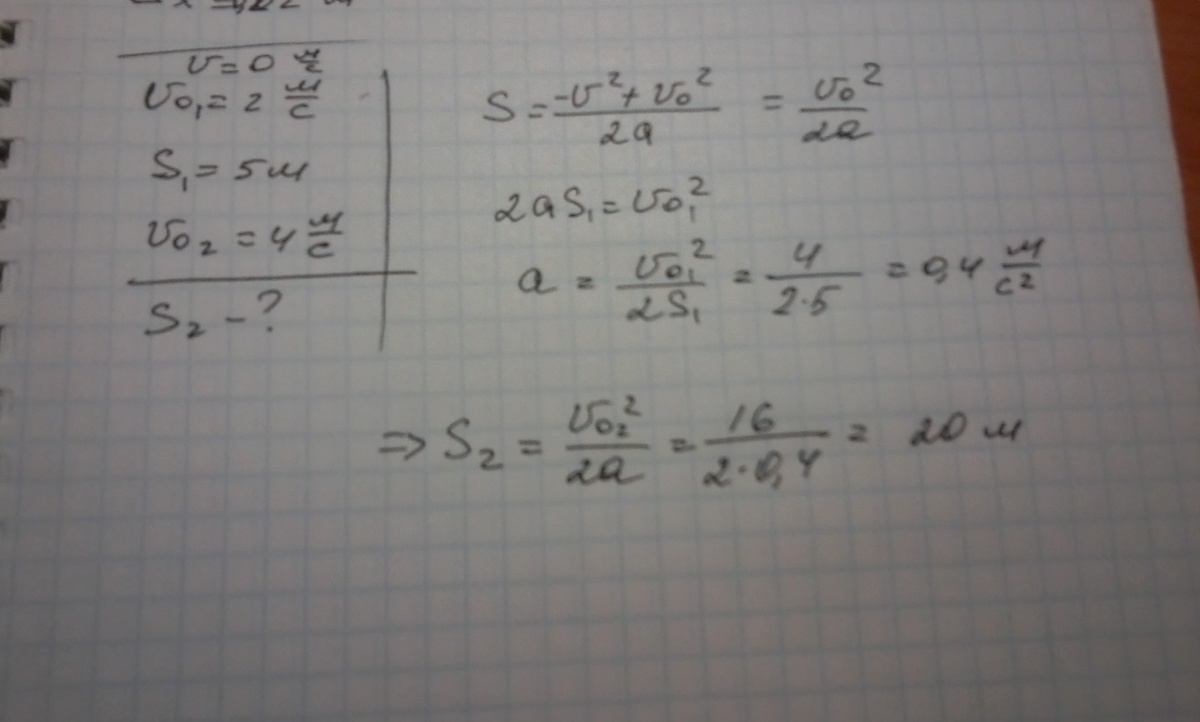 υ = 0 м/с
υ₀₁ = 2 м/с
S₁ = 5 м
υ₀₂ = 4 м/с
S₂ - ?
S = (-υ² + υ₀²)/2a = υ₀²/2a
2aS₁ = υ₀₁²
a = υ₀₁²/2S₁ = 4/2·5 = 0,4 м/с²
⇒ S₂ = υ₀₂²/2a = 16/2·0,4 = 20 м